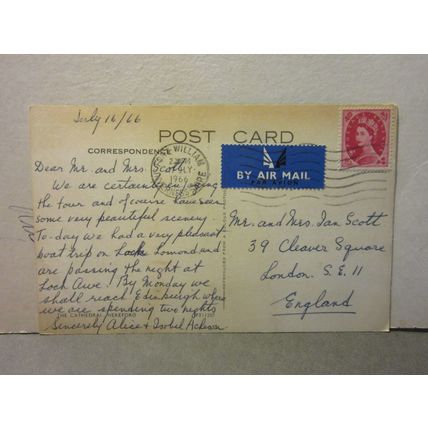 July 16/66
POST CARD
CORRESPONDENCE
Dear Mr. and Mrs. Scott
We are certainly enjoying
the tour and of course have seen
some very beautiful scenery.
To-day we had a very pleasant
boat trip on Loch Lomond and
are passing the night at
Loch Awe. By Monday we
shall reach Edinburgh where
we are spending two nights
Sincerely Alice & Isobel
THE CATHEDRAL, HEREFORD
WILLIAM
1966
BY AIR MAIL
PAR AVION
Mr. and Mrs. Ian Scott
39 Cleaver Square
London. S.E. 11
England